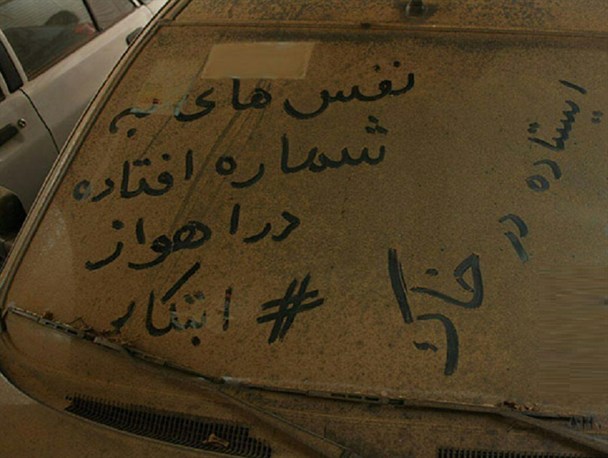 نفس های به
شماره افتاده
در اهواز
# ابتکار
ایستاده در
خاک